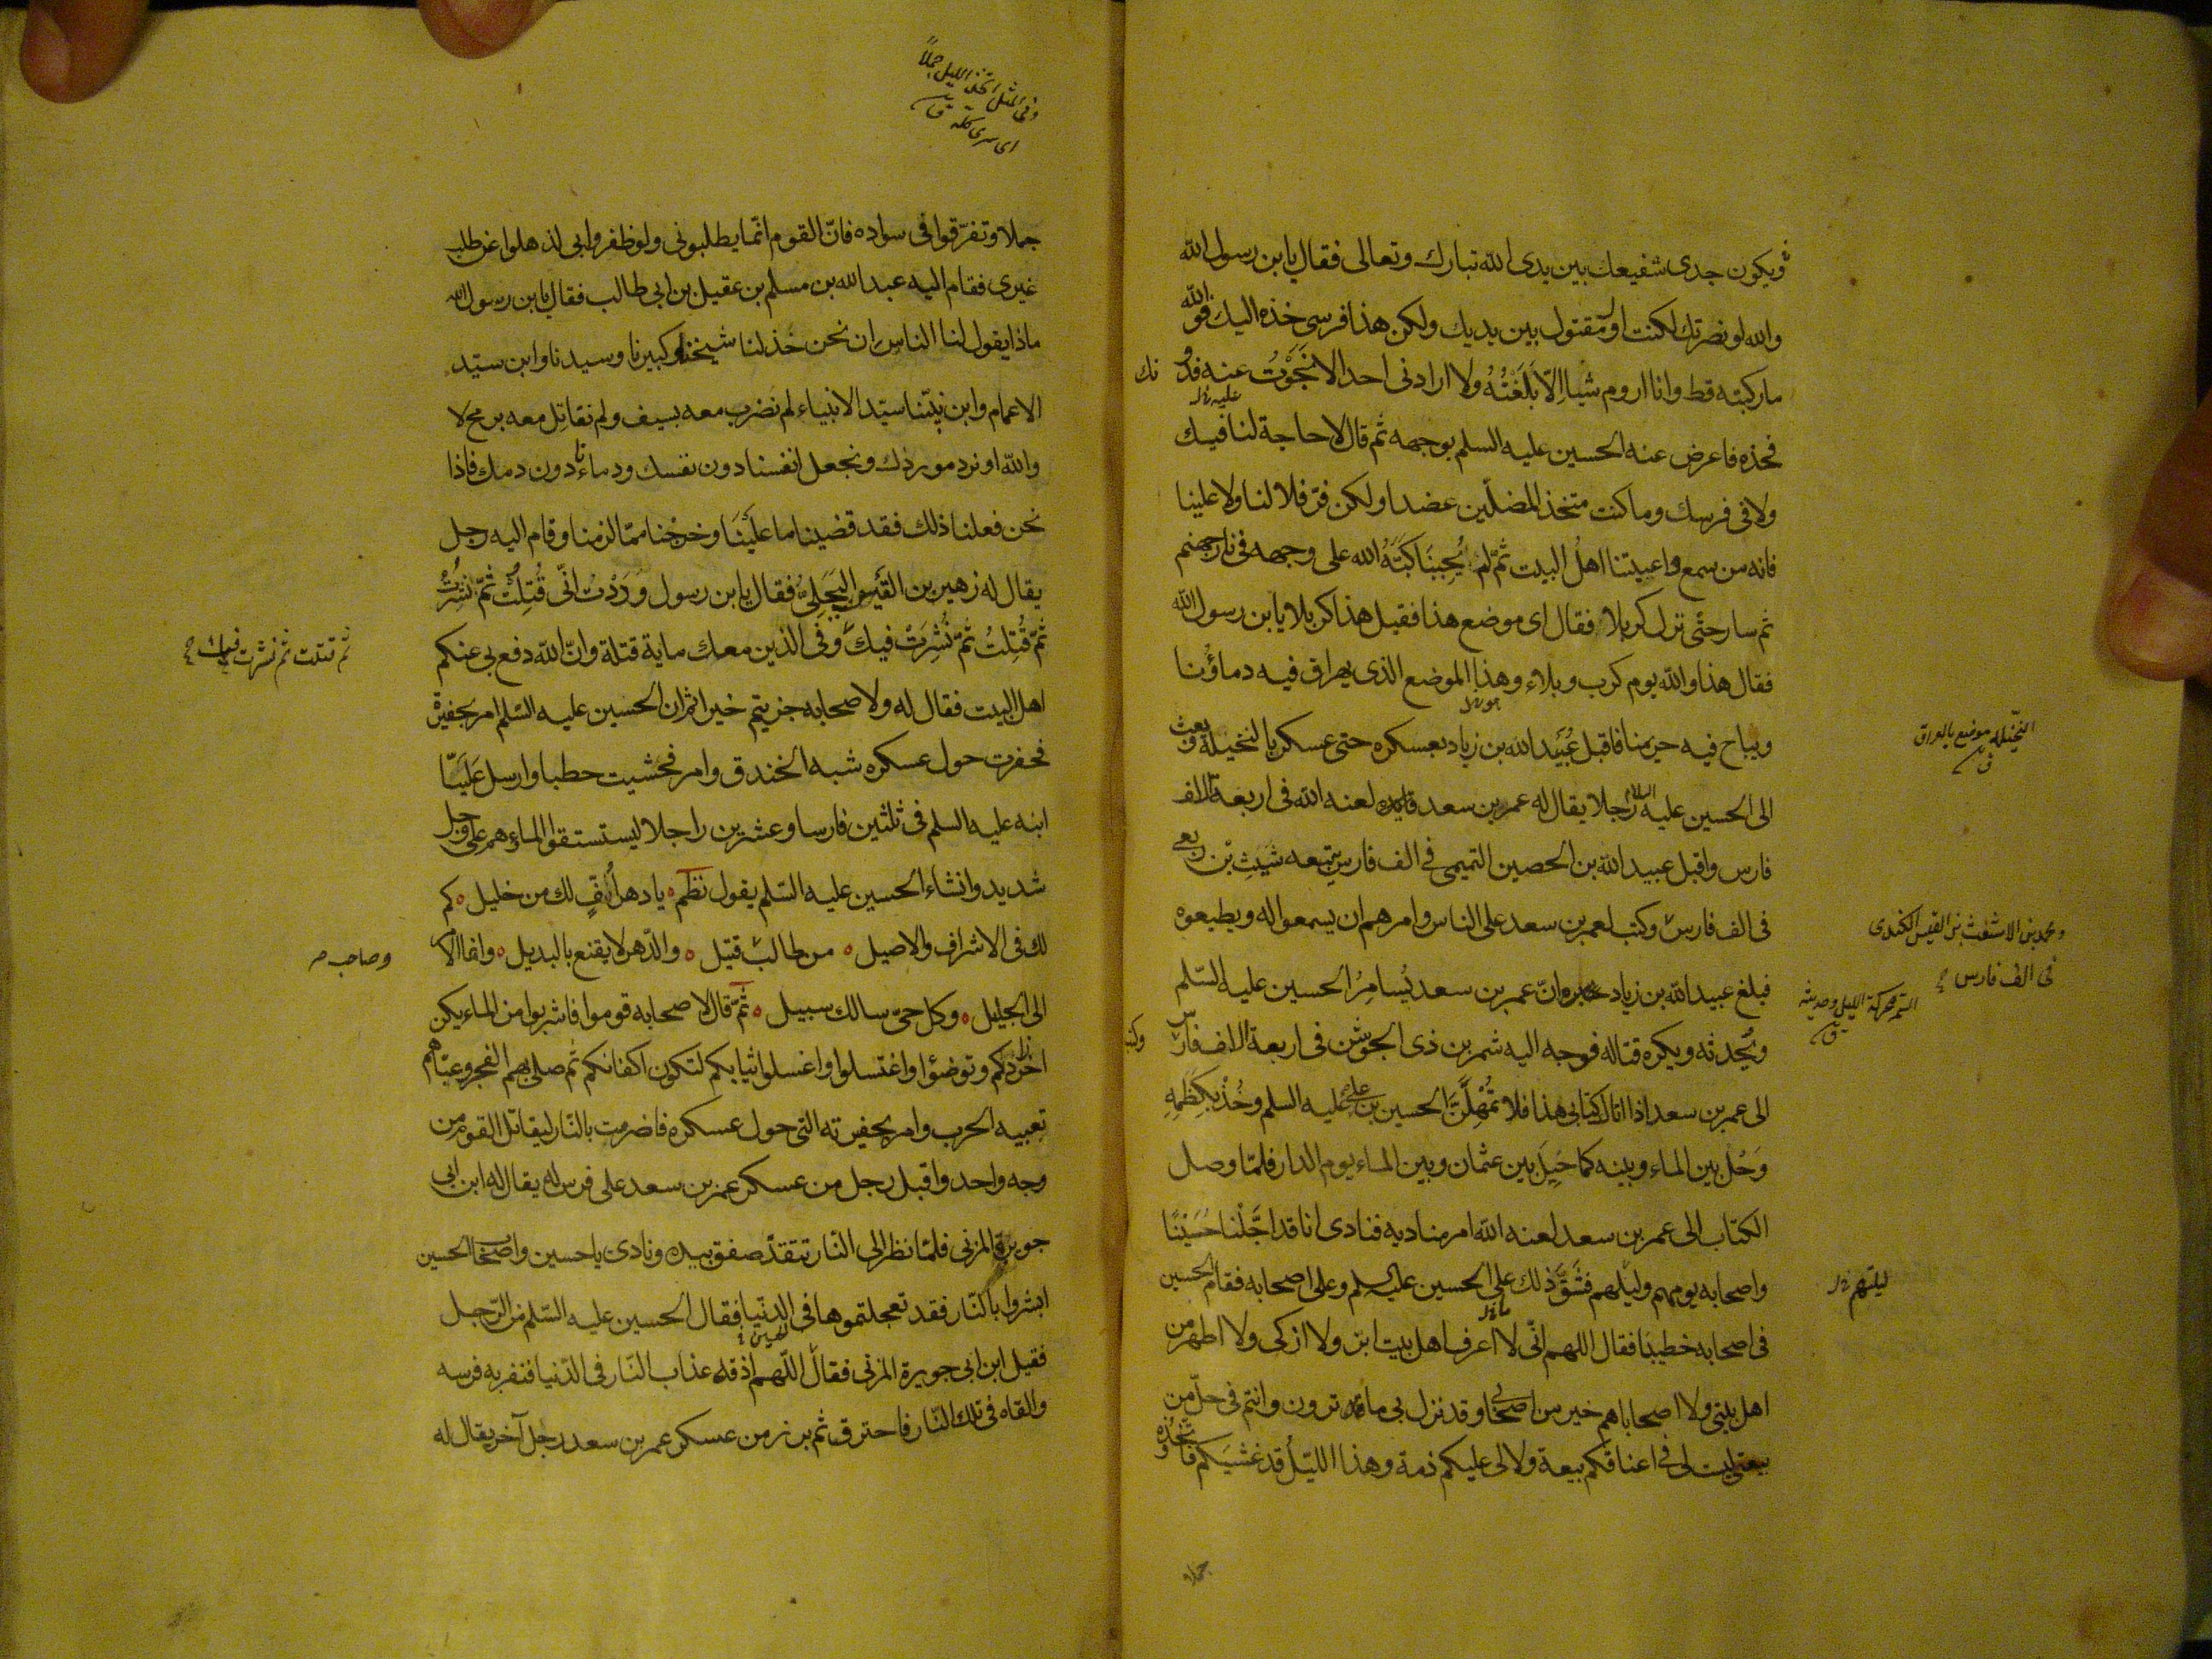 ويكون جدى شفيعك بين يدى الله تبارك وتعالى فقال يابن رسول الله
والله لو نصرتك لكنت اول مقتول بين يديك ولكن هذا فرسى خذه اليك فو الله
ما ركبته قط وانا اروم شيئا الّا بَلَغْتُهُ ولا ارادنى احد الا نَجَوْتُ عنه فدو
نك
عليه
فخذه فاعرض عنه الحسين عليه السلم بوجهه ثم قال لا حاجة لنا فيك
ولا فى فرسك وما كنت متخذ المضلّين عضدا ولكن فرّ فلا لنا ولا علينا
فانه من سمع واعيتنا اهلُ البيت ثمّ لم يُجِبنَا كَبَّهُ الله على وجهه فى نار جهنم
ثم سار حتّى نزل كربلا فقال اى موضع هذا فقيل هذا كربلا يابن رسول الله
فقال هذا والله يوم كرب وبلاء وهذا الموضع الذى يهراق فيه دماؤنا
ويباح فيه حريمنا فاقبل عُبَيد الله بن زياد بعسكره حتى عسكر بالنخيلة وبعث
النخيلة موضع بالعراق
ق
الى الحسين عليه السلام رجلا يقال له عمر بن سعد قايده لعنه الله فى اربعة الاف
فارس واقبل عبيد الله بن الحصين التميمى فى الف فارس يتبعه شَبَث بن ربعى
فى الف فارس وكتب لعمر بن سعد على الناس وامرهم ان يسمعوا له ويطيعوه
ومحمد بن الاشعث بن القيس الكندى
فى الف فارس
فبلغ عبيد الله بن زياد ان عمر بن سعد يُسامِرُ الحسين عليه السّلم
السمر محركة الليل وحديثه
ق
ويُحدثه ويكره قتاله فوجه اليه شمر بن ذى الجوشن فى اربعة الاف فارس
وكتب
الى عمر بن سعد اذا اتاك كتابى هذا فلا تُمْهِلَنَّ الحسين بن على عليه السلم وخُذْ بِكَظَمِهِ
وَحُل بين الماء وبينه كما حِيلَ بين عثمان وبين الماء يوم الدار فلمّا وصل
الكتاب الى عمر بن سعد لعنه الله امر مناديه فنادى انا قد اجَّلْنا حُسَيْنًا
واصحابه يومهم وليلهم فشَقَّ ذلك على الحسين عليه السلم وعلى اصحابه فقام الحسين
ليلتهم
فى اصحابه خطيبا فقال اللهم انّى لا اعرف اهل بيت ابرّ ولا ازكى ولا اطهر من
اهل بيتى ولا اصحابا هم خير من اصحابى وقد نزل بى ما قد ترون وانتم فى حلّ من
بيعتى ليست لى فى اعناقكم بيعة ولا لى عليكم ذمة وهذا الليلُ قد غشيَكم فاتّخذوه
جملا
وفى المثل اتخذ الليل جملًا
اى سرى كله ق
جملا وتفرّقوا فى سواده فانّ القوم انّما يطلبونى ولو ظفروا بى لذهلوا عن طلب
غيرى فقام اليه عبد الله بن مسلم بن عقيل بن ابى طالب فقال يابن رسول الله
ماذا يقول لنا الناس ان نحن خَذلنا شيخنا وكبيرنا وسيدنا وابن سيّد
الاعمام وابن نبيّنا سيّد الانبياء لم نضرب معه بسيف ولم نقاتل معه برمح لا
والله او نرد موردك ونجعل انفسنا دون نفسك ودماءنا دون دمك فاذا
نحن فعلنا ذلك فقد قضينا ما عَلَينَا وخرجنا مما لزمنا وقام اليه رجل
يقال له زهير بن القَيس البَجَلِىّ فقال يابن رسول وَدَدْتُ انّى قُتِلْتُ ثمّ نُشِرْتُ
ثمّ قُتِلتُ ثمّ نُشِرَتُ فيك وفى الذين معك ماية قتلة وانّ الله دفع بى عنكم
ثم قتلت ثم نشرت فيك
اهل البيت فقال له ولاصحابه جزيتم خيرا ثم ان الحسين عليه السّلم امر بحفيرة
فحفرت حول عسكره شبه الخندق وامر فحشيت حطبا وارسل عَلَيّا
ابنه عليه السلم فى ثلثين فارسا وعشرين راجلا ليستسقوا الماء وهم على وجل
شديد وانشاء الحسين عليه السّلم يقول نظم ه يا دهر اُفٍّ لك من خليل ه كم
لك فى الاشراق والاصيل ه من طالب قتيل ه والدّهر لا يقنع بالبديل ه وانما الامر
وصاحب
الى الجليل ه وكل حىّ سالك سبيل ه ثمّ قال لاصحابه قوموا فاشربوا من الماء يكن
اخر زادكم وتوضؤا واغتسلوا واغسلوا ثيابكم لتكون اكفانكم ثم صلى بهم الفجر وعبّاهم
تعبيه الحرب وامر بحفيرته التى حول عسكره فاضرمت بالنّار ليقاتل القوم من
وجه واحد واقبل رجل من عسكر عمر بن سعد على فرس له يقال له ابن ابى
جويرة المزنى فلمّا نظر الى النّار تتقدّ صفق بيده ونادى يا حسين واصحاب الحسين
ابشروا بالنّار فقد تعجلتموها فى الدنيا فقال الحسين عليه السّلم من الرّجل
فقيل ابن ابى جويرة المزنى فقال اللّهم اذقه عذاب النّار فى الدّنيا فنفر به فرسه
والقاه فى تلك النّار فاحترق ثم برز من عسكر عمر بن سعد رجل آخر يقال له